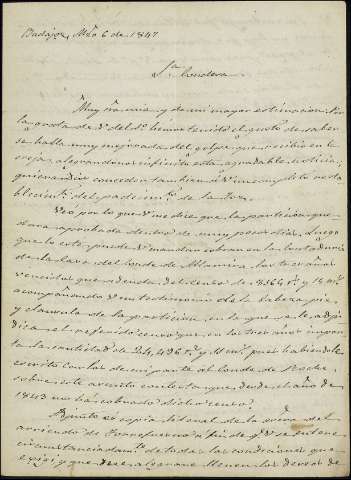 Badajoz, Mzo 6 de 1847
Sra. Condesa
Muy sra. mia y de mi mayor estimacion: Por
la grata de V. del 1º hemos tenido el gusto de saber
se halla muy mejorada del golpe que recibió en la
ceja, alegrandonos infinito esta agradable noticia,
queriendo conceder tambien á V. un completo resta
blecimto. del padecimto. de la tos.
Veo por lo que V. me dice que la particion que
dara aprobada dentro de muy pocos dias. Luego
que lo esté puede V. mandar cobrar en la Contaduria
de la Casa del Conde de Altamira los tres años
vencidos que adeuda del censo de 8.164 rs. y
acompañando un testimonio de la cabeza, pie
y clausula de la particion en la que se le adju
dica el referido censo, que en los tres años impor
ta la cantidad de 24,496 rs. y 11 ms. pues habiendo
escrito con los de mi parte al Conde de
sobre este asunto contesta que desde el año de
1843 no ha cobrado dicho censo.
Adjunto es copia literal de la del
arriendo de á fin de qe. V. se entere
circunstanciadamte. de todas las condiciones que
exigí, y que deseo alegrarme llenen los deseos de